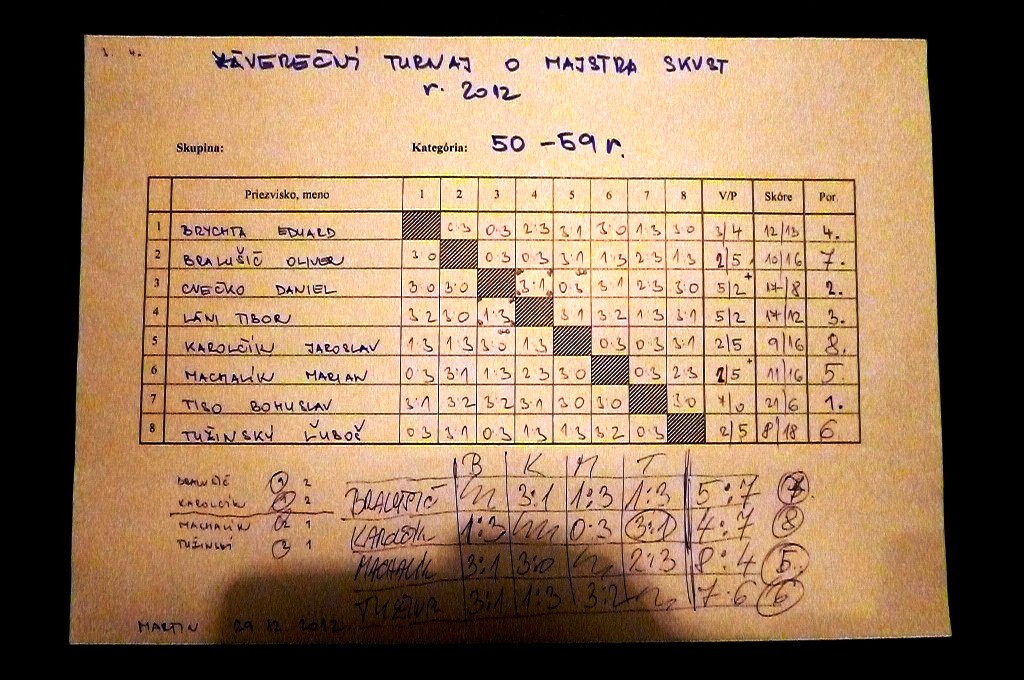 ZÁVEREČNÍ TURNAJ O MAJSTRA SKVST
r. 2012
Skupina: Kategória: 50 - 59 r.
Priezvisko, meno 1 2 3 4 5 6 7 8 V/P Skóre Por.
1 BRYCHTA EDUARD 0:3 0:3 2:3 3:1 3:0 1:3 3:0 3/4 12/13 4.
2 BRALUŠIČ OLIVER 3:0 0:3 0:3 3:1 1:3 2:3 1:3 2/5 10/16 7.
3 CVEČKO DANIEL 3:0 3:0 3:1 0:3 3:1 2:3 3:0 5/2 17/8 2.
4 LÁNI TIBOR 3:2 3:0 1:3 3:1 3:2 1:3 3:1 5/2 17/12 3.
5 KAROLČÍK JAROSLAV 1:3 1:3 3:0 1:3 0:3 0:3 3:1 2/5 9/16 8.
6 MACHALÍK MARIAN 0:3 3:1 1:3 2:3 3:0 0:3 2:3 2/5 11/16 5.
7 TISO BOHUSLAV 3:1 3:2 3:2 3:1 3:0 3:0 3:0 7/0 21/6 1.
8 TUŽINSKÝ ĽUBOŠ 0:3 3:1 0:3 1:3 1:3 3:2 0:3 2/5 8/18 6
B K M T
BRALUŠIČ 3:1 1:3 1:3 5:7 7.
KAROLČÍK 1:3 0:3 3:1 4:7 8
MACHALÍK 3:1 3:0 2:3 8:4 5.
3:1 1:3 3:2 7:6 6
BRALUŠIČ 2
KAROLČÍK 2
MACHALÍK 2 1
TUŽINSKÝ 1
MARTIN 29 12 2012